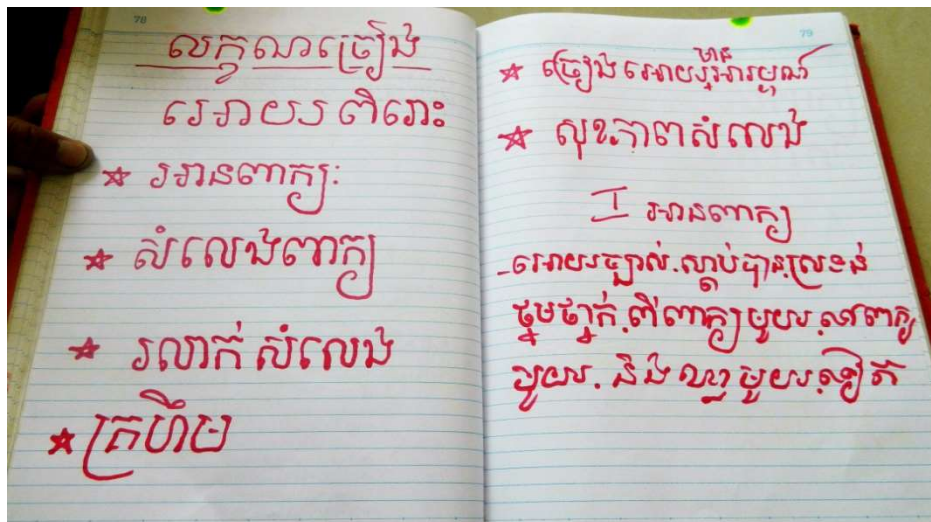 78
លក្ខណច្រៀង
អោយពិរោះ
☆ អានពាក្យ:
☆ សំលេងពាក្យ
☆ រលាក់សំលេង
☆ គ្រហឹម
79
☆ ច្រៀងអោយមានអារម្មណ៍
☆ សុខភាពសំលេង
I អានពាក្យ
-អោយច្បាស់.ស្តាប់បាន.ស្រទន់
ផ្គមផ្គាក់.ពីពាក្យមួយ.ទៅពាក្យ
មួយ. និង ឃ្លាមួយ.ទៀត